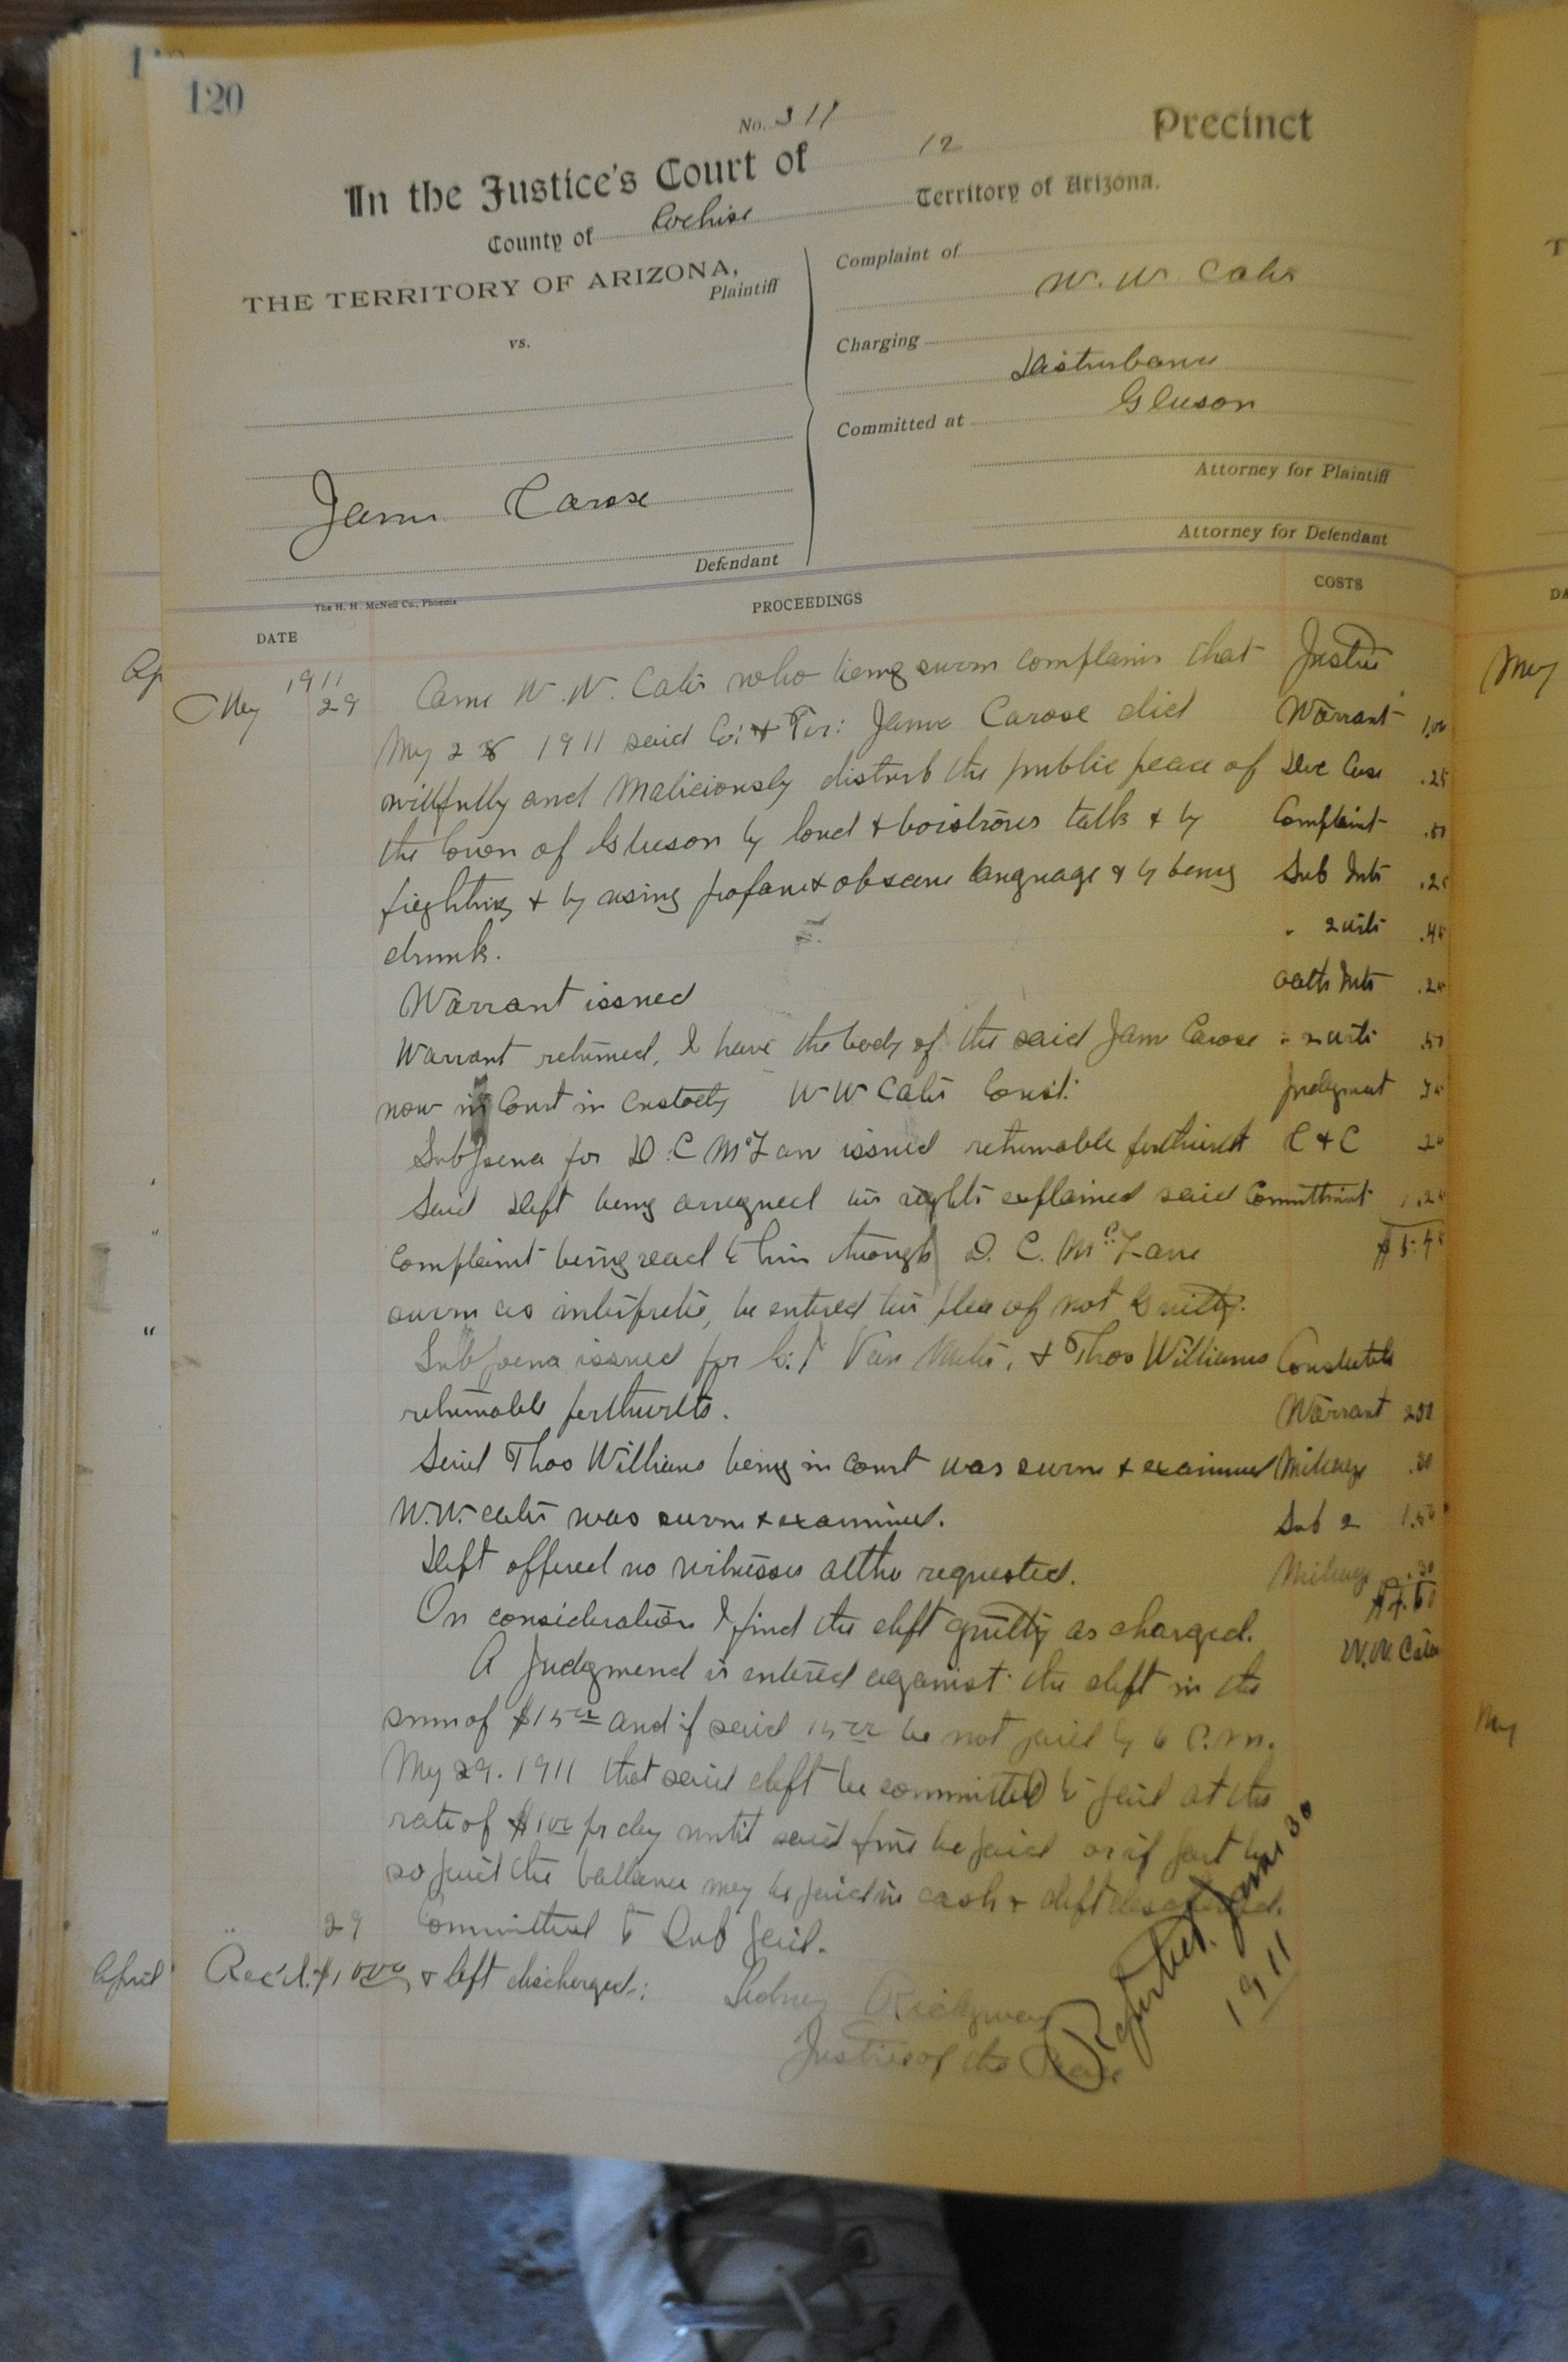 120
No. 311
In the Justice's Court of 12 Precinct
County of Cochise Territory of Arizona.
THE TERRITORY OF ARIZONA,
Plaintiff
vs.
Jame Carose
Defendant
Complaint of
W. W. Cates
Charging
Disturbance
Committed at Gleeson
Attorney for Plaintiff
Attorney for Defendant
The H. H. McNeil Co., Phoenix
DATE PROCEEDINGS COSTS
1911
May 29 Came W. W. Cates who being sworn complains that
May 28 1911 said Co: & Ter: Jame Carose did
willfully and Maliciously disturb the public peace of
the town of Gleeson by loud & boistrous talk & by
fieghting & by using profane & obscene language & by being
drunk.
Warrant issued
Warrant returned, I have the body of the said Jame Carose
now in Court in custody W W Cates Const:
Subpoena for D. C. McLane issued returnable forthwith
Said Deft being arregned his rights explained said
complaint being read to him through D. C. McLane
sworn as interpreter, he entered his plea of not Guilty.
Subpoena issued for Van & Thos Williams
returnable forthwith.
Said Thos Williams being in court was sworn & examined
W. W. Cates was sworn & examined.
Deft offered no witnesses altho requested.
On consideration I find the deft guilty as charged.
A Judgmend is entered against the deft in the
sum of $15 and if said 15 be not paid by 6 P.m.
May 29. 1911 that said deft be committed to jail at the
rate of $1 pr day until said fine be paid or if part be
so paid the ballance may be paid in cash & deft
29 Committed to Sub Jail.
Rec'd. & deft discharged:
Sidney Ridgway
Justice of the Peace
Reported. June 30
1911
Justice
Warrant 1.00
Doc Case .25
Complaint .50
Sub Intr .25
" 2 wits
Oath Intr .25
" 2 wits .50
Judgment
C & C
Committment
Constable
Warrant 2.00
Mileage .30
Sub 2
Mileage .30
W. W. Cates
May
April
May